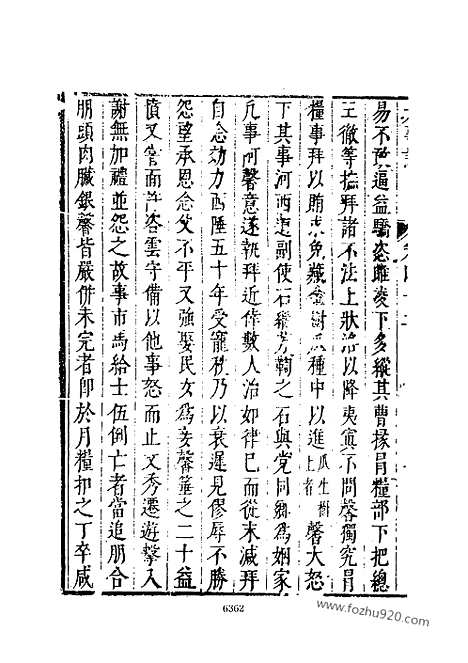 易不予逼益驕恣雎凌下多縱其曹掾冒糧部下把總
王徹等撫拜諸不法上狀治以降夷寘不問馨獨究冐
糧事拜以賄求免藏金樹瓜種中以進瓜生樹上者馨大怒
下其事河西道副使石繼芳鞫之石與党同鄉爲姻家
凡事河馨意遂執拜近倖數人治如律已而從末減拜
自念効力西陲五十年受寵秩乃以衰遲見僇辱不勝
怨望承恩念父不平又強娶民女爲妾馨箠之二十益
憤又嘗面許咨雲守備以他事怒而止文秀遷遊擊入
謝無加禮並怨之故事市馬給士伍倒亡者當追朋合
朋頭肉臟銀馨皆嚴併未完者卽於月糧扣之丁卒咸
6362
www.fozhu920.com